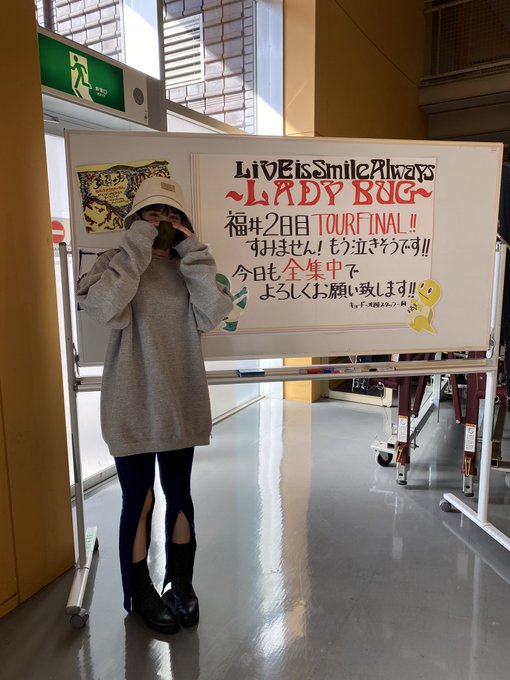 非常口
LiVE is Smile Always
~LADY BUG~
福井2日目 TOUR FINAL!!
すみません! もう泣きそうです!!
今日も全集中で
よろしくお願い致します!!